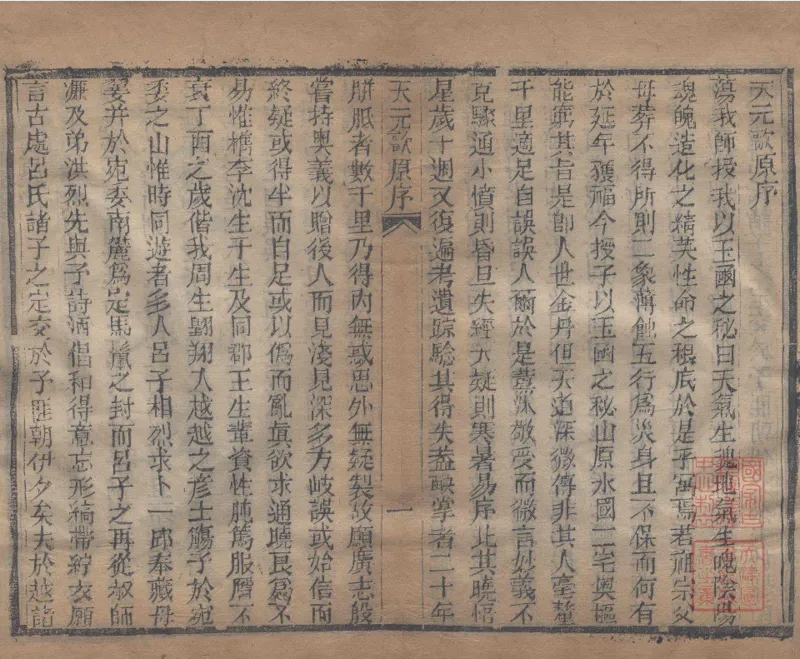 天元歌原序
蕩我師授我以玉函之秘曰天氣生魂地氣生魄陰陽
魂魄造化之精英性命之根底於是乎寓焉若祖宗父
母葬不得所則二象薄蝕五行爲災身且不保而何有
於延年獲福今授子以玉函之秘山原水國二宅奧樞
能寓其旨是卽人世金丹但天道深微傳非其人毫釐
千里適足自誤誤人爾於是薰沐敬受而微言妙義不
克驟通小憤則昏旦失經大疑則寒暑易序比其曉悟
是歲十週又復遍考遺踪驗其得失葢鞅掌者二十年
天元歌原序 一
胼胝者數千里乃得內無惑思外無疑製攷願廣志殷
嘗持奧義以贈後人而見淺見深多方岐誤或始信而
終疑或得半而自足或以僞而亂眞欲求通曉良爲不
易惟檇李沈生于生及同郡王生輩資性肫篤服膺不
衰丁酉之歲偕我周生翱翔入越越之彥士觴予於宛
委之山惟時同遊者多人呂子相烈求卜一邱奉藏母
妻幷於宛委南麓爲定馬鬛之封而呂子之再從叔師
濂及弟洪烈先與予詩酒倡和得意忘形縞帶紵衣願
言古處呂氏諸子之定交於予匪朝伊夕矣夫於越諸